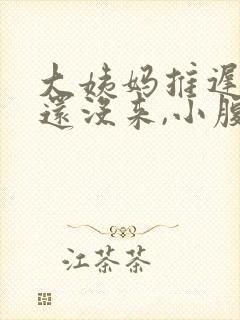 大姨妈推迟
还没来,小腹
江茶茶